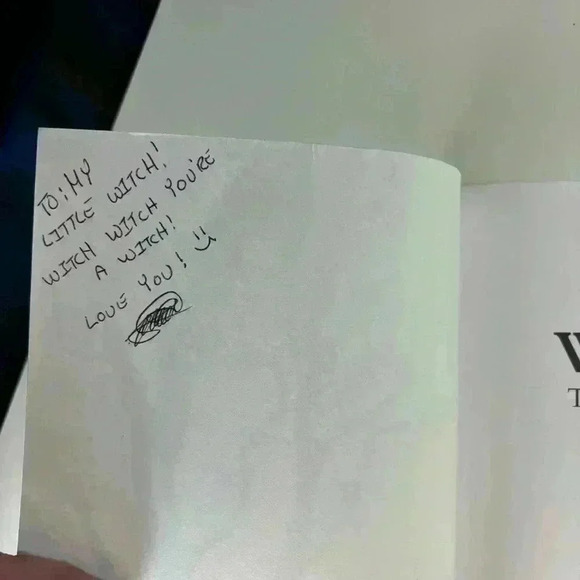 TO: MY
LITTLE WITCH!
WITCH WITCH YOU'RE
A WITCH!
LOVE YOU! :)
W
T